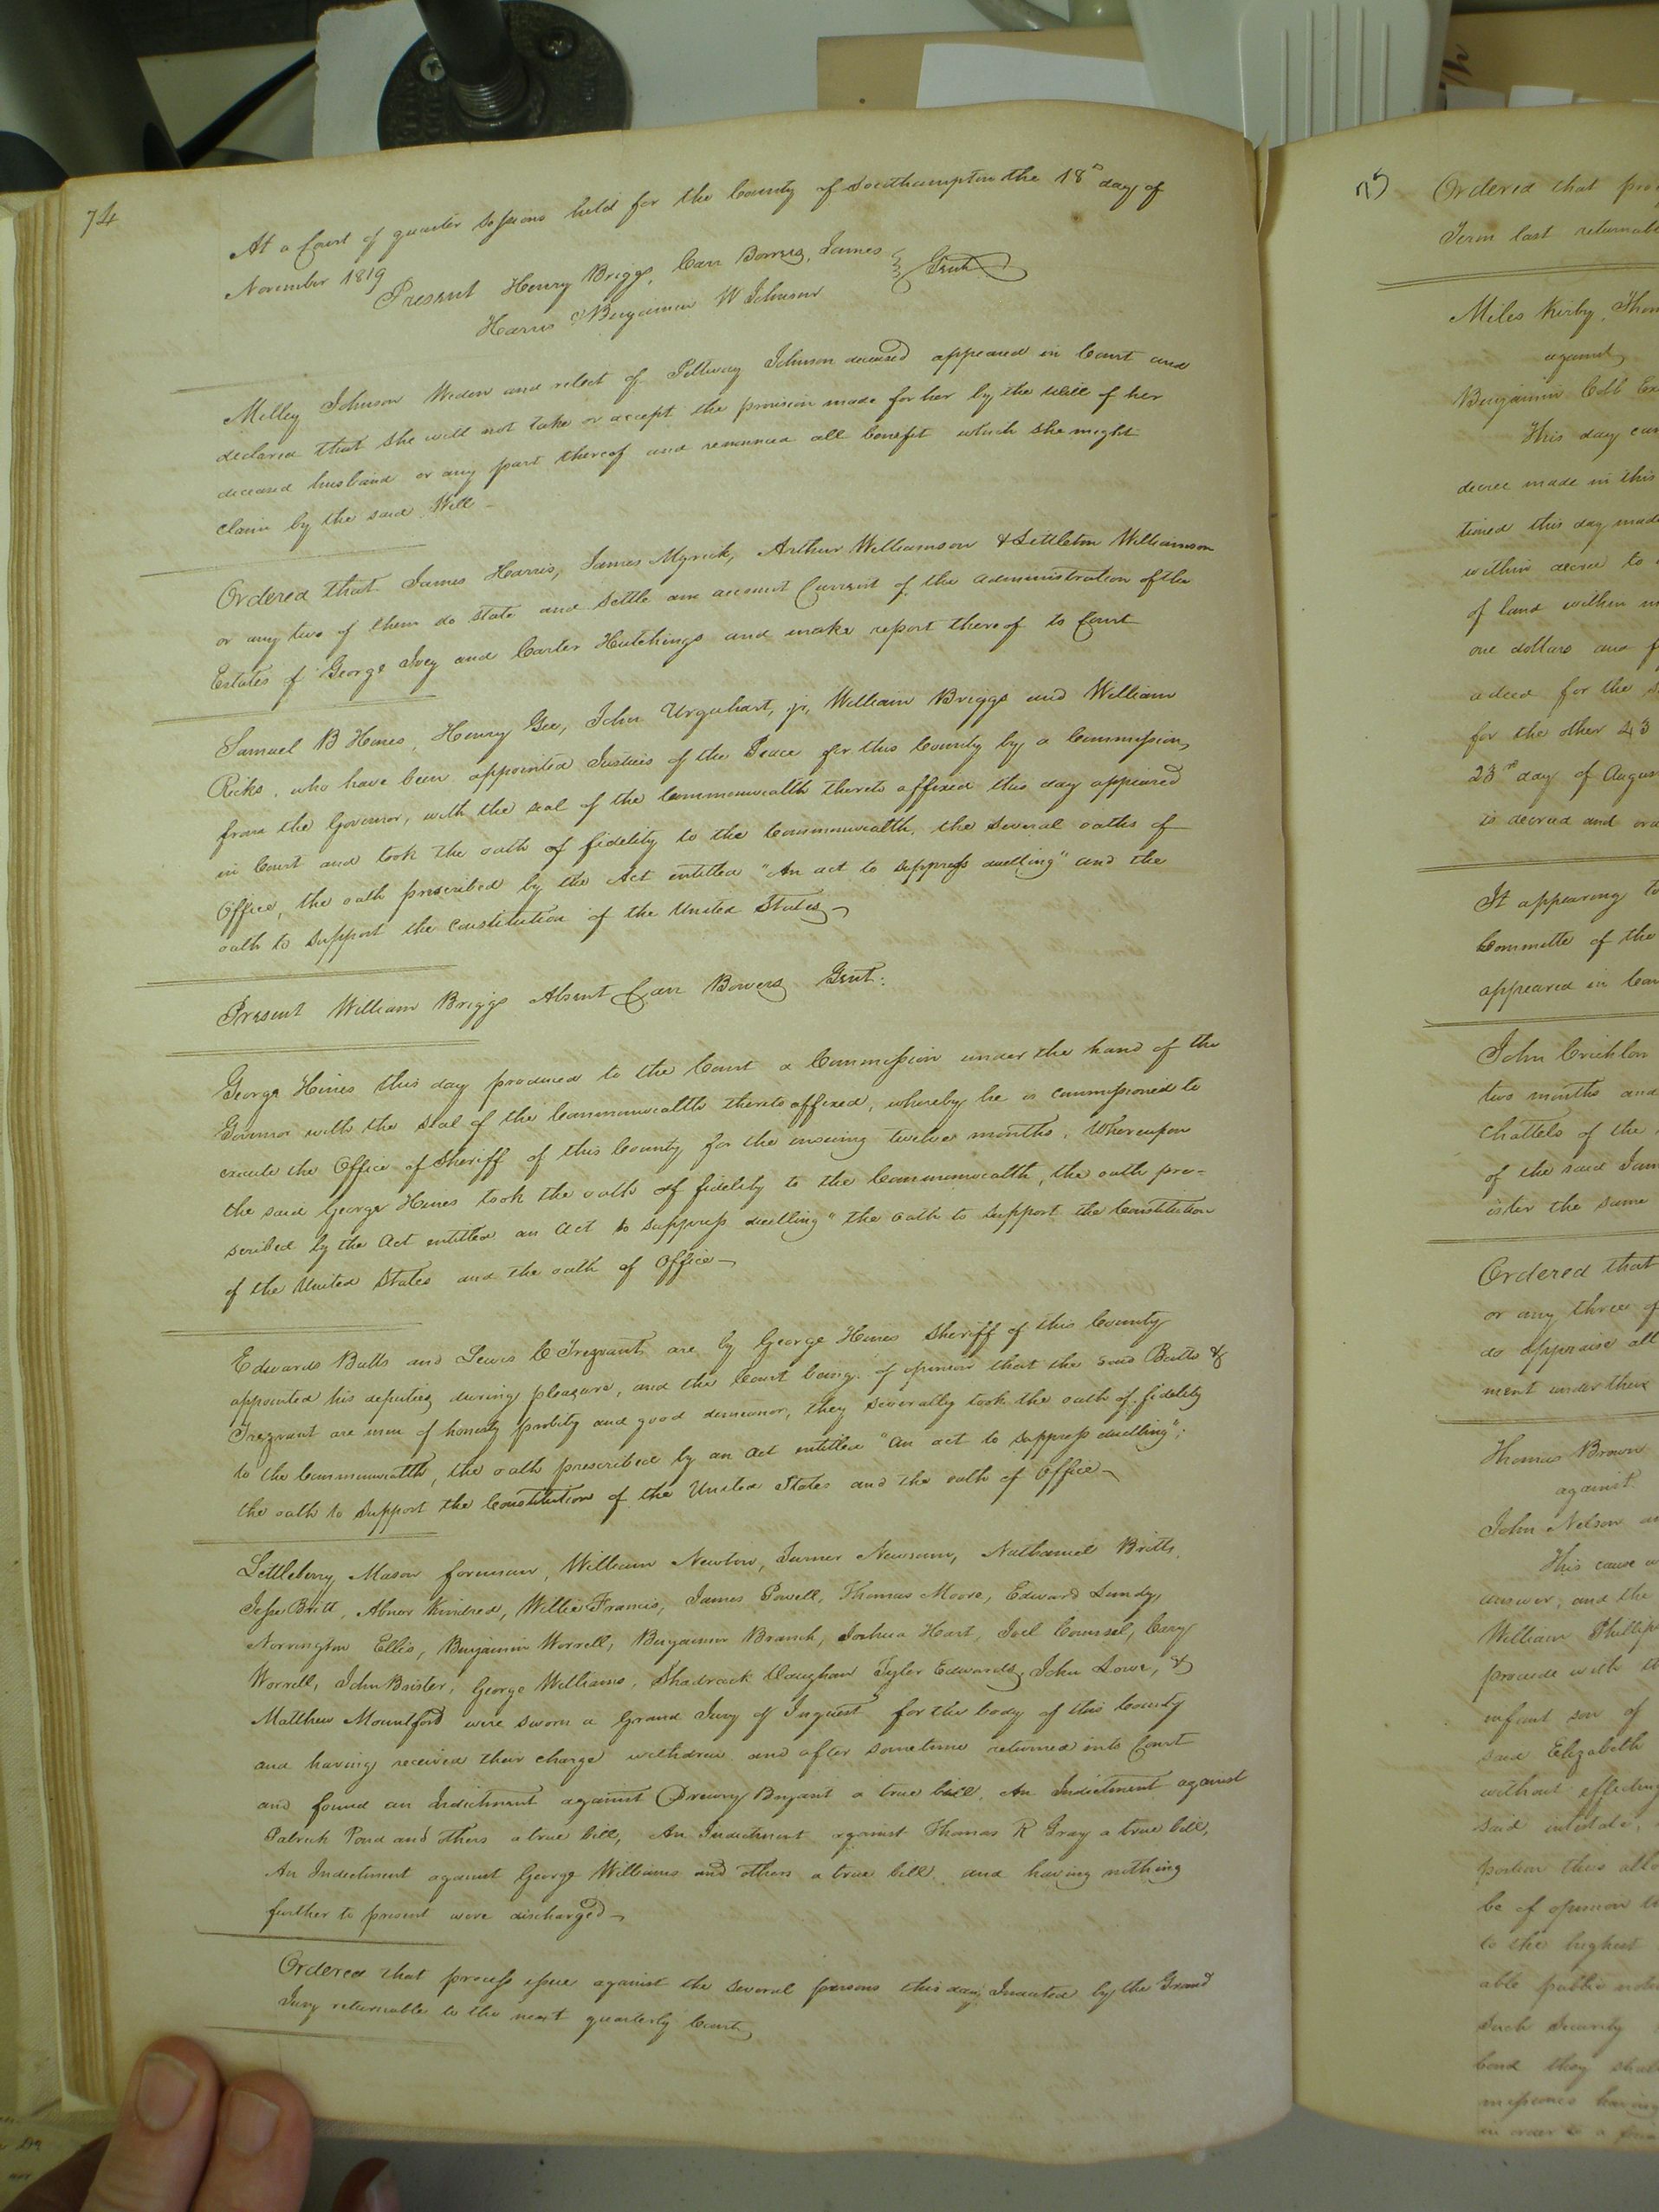 74
At a Court of quarter Sessions held for the County of Southampton the 18th day of
November 1819
Present Henry Briggs, Carr Bowers, James
Harris & Benjamin W Johnson Gent
Milley Johnson Widow and relect of Pettway Johnson deceased appeared in Court and
declared that she will not take or accept the provision made for her by the Will of her
deceased husband or any part thereof and renounced all benefit which she might
claim by the said Will
Ordered that James Harris, James Myrick, Arthur Williamson & Littleton Williamson
or any two of them do state and settle an account Current of the administration of the
Estates of George Ivey and Carter Hutchings and make report thereof to Court
Samuel B Hines, Henry Gee, John Urquhart, jr, William Briggs and William
Ricks, who have been appointed Justices of the Peace for this County by a Commission
from the Governor, with the seal of the Commonwealth thereto affixed this day appeared
in Court and took the oath of fidelity to the Commonwealth, the several oaths of
Office, the oath prescribed by the Act entitled "An act to suppress duelling" and the
oath to support the constitution of the United States
Present William Briggs Absent Carr Bowers Gent:
George Hines this day produced to the Court a Commission under the hand of the
Governor with the seal of the Commonwealth thereto affixed, whereby he is commissioned to
execute the Office of Sheriff of this County for the ensuing twelve months, Whereupon
the said George Hines took the oath of fidelity to the Commonwealth, the oath pre-
scribed by the Act entitled an Act to suppress duelling" the oath to support the Constitution
of the United States and the oath of Office
Edwards Butts and Lewis C Trezvant are by George Hines Sheriff of this County
appointed his deputies during pleasure, and the Court being of opinion that the said Butts &
Trezvant are men of honesty probity and good demeanor, they severally took the oath of fidelity
to the Commonwealth, the oath prescribed by an Act entitled "An act to suppress duelling";
the oath to support the Constitution of the United States and the oath of Office
Littleberry Mason foreman, William Newton, Turner Newsum, Nathaniel Britts,
Jesse Britt, Abner Kindred, Willie Francis, James Powell, Thomas Moore, Edward Lundy,
Norrington Ellis, Benjamin Worrell, Benjamin Branch, Joshua Hart, Joel Counsel, Cary
Worrell, John Brister, George Williams, Shadrack Vaughan Tyler Edwards, John Lowe, &
Matthew Mountford were sworn a Grand Jury of Inquest for the body of this County
and having received their charge withdrew and after sometime returned into Court
and found an Indictment against Drewry Bryant a true bill, An Indictment against
Patrick Pond and others a true bill, An Indictment against Thomas R Gray a true bill,
An Indictment against George Williams and others a true bill, and having nothing
further to present were discharged
Ordered that process issue against the several persons this day Indicted by the Grand
Jury returnable to the next quarterly Court
75
Ordered that
Term last
Miles Kirby,
against
Benjamin Cobb
This day
decree made in this
tioned this day made
within decree to
of land within
one dollars and
a deed for the
for the other 23
23rd day of
is decreed and
It appearing to
Committe of the
appeared in
John Crichlow
two months and
Chattels of the
of the said
ister the same
Ordered that
or any three of
do appraise all
ment under their
Thomas Brown
against
John Nelson
This cause
answer, and the
William
proceed with
infant son of
said Elizabeth
without
said intestate,
portion thus
be of opinion
to the highest
able public
such security
bond they
having
in order to a